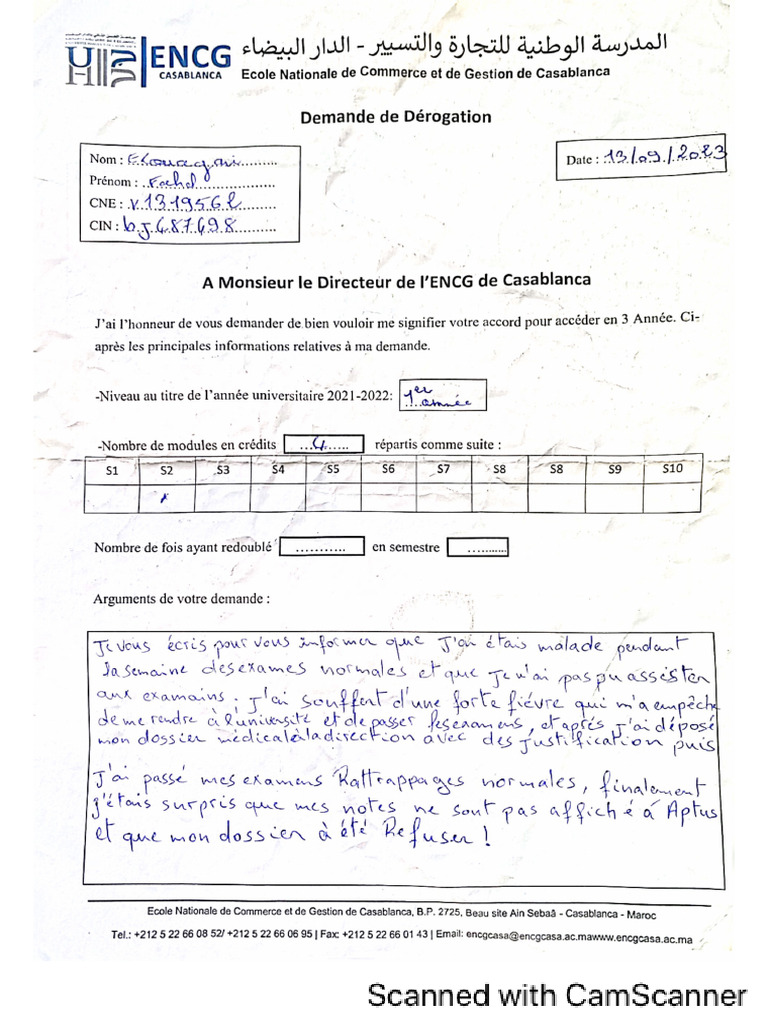 المدرسة الوطنية للتجارة والتسيير - الدار البيضاء
ENCG
CASABLANCA
Ecole Nationale de Commerce et de Gestion de Casablanca
Demande de Dérogation
Nom : Elouagani..........
Prénom : ..Fahd....................
CNE : v.1319562..........
CIN : b.J.687698..........
Date : .13/09./2023
A Monsieur le Directeur de l'ENCG de Casablanca
J'ai l'honneur de vous demander de bien vouloir me signifier votre accord pour accéder en 3 Année. Ci-
après les principales informations relatives à ma demande.
-Niveau au titre de l'année universitaire 2021-2022: 1er année
-Nombre de modules en crédits ....4...... répartis comme suite :
S1 S2 S3 S4 S5 S6 S7 S8 S8 S9 S10
x
Nombre de fois ayant redoublé ........... en semestre ..........
Arguments de votre demande :
Je vous écris pour vous informer que J'ai étais malade pendant
la semaine des exames normales et que Je n'ai pas pu assister
aux examains. J'ai souffert d'une forte fièvre qui m'a empêche
de me rendre à l'université et de passer les examens, et aprés J'ai déposé
mon dossier médicale à la direction avec des justification puis
J'ai passé mes examens Rattrappages normales, finalement
j'étais surpris que mes notes ne sont pas affiché à Aptus
et que mon dossier à été Refuser !
Ecole Nationale de Commerce et de Gestion de Casablanca, B.P. 2725, Beau site Ain Sebaâ - Casablanca - Maroc
Tel.: +212 5 22 66 08 52/ +212 5 22 66 06 95 | Fax: +212 5 22 66 01 43 | Email: encgcasa@encgcasa.ac.mawww.encgcasa.ac.ma
Scanned with CamScanner